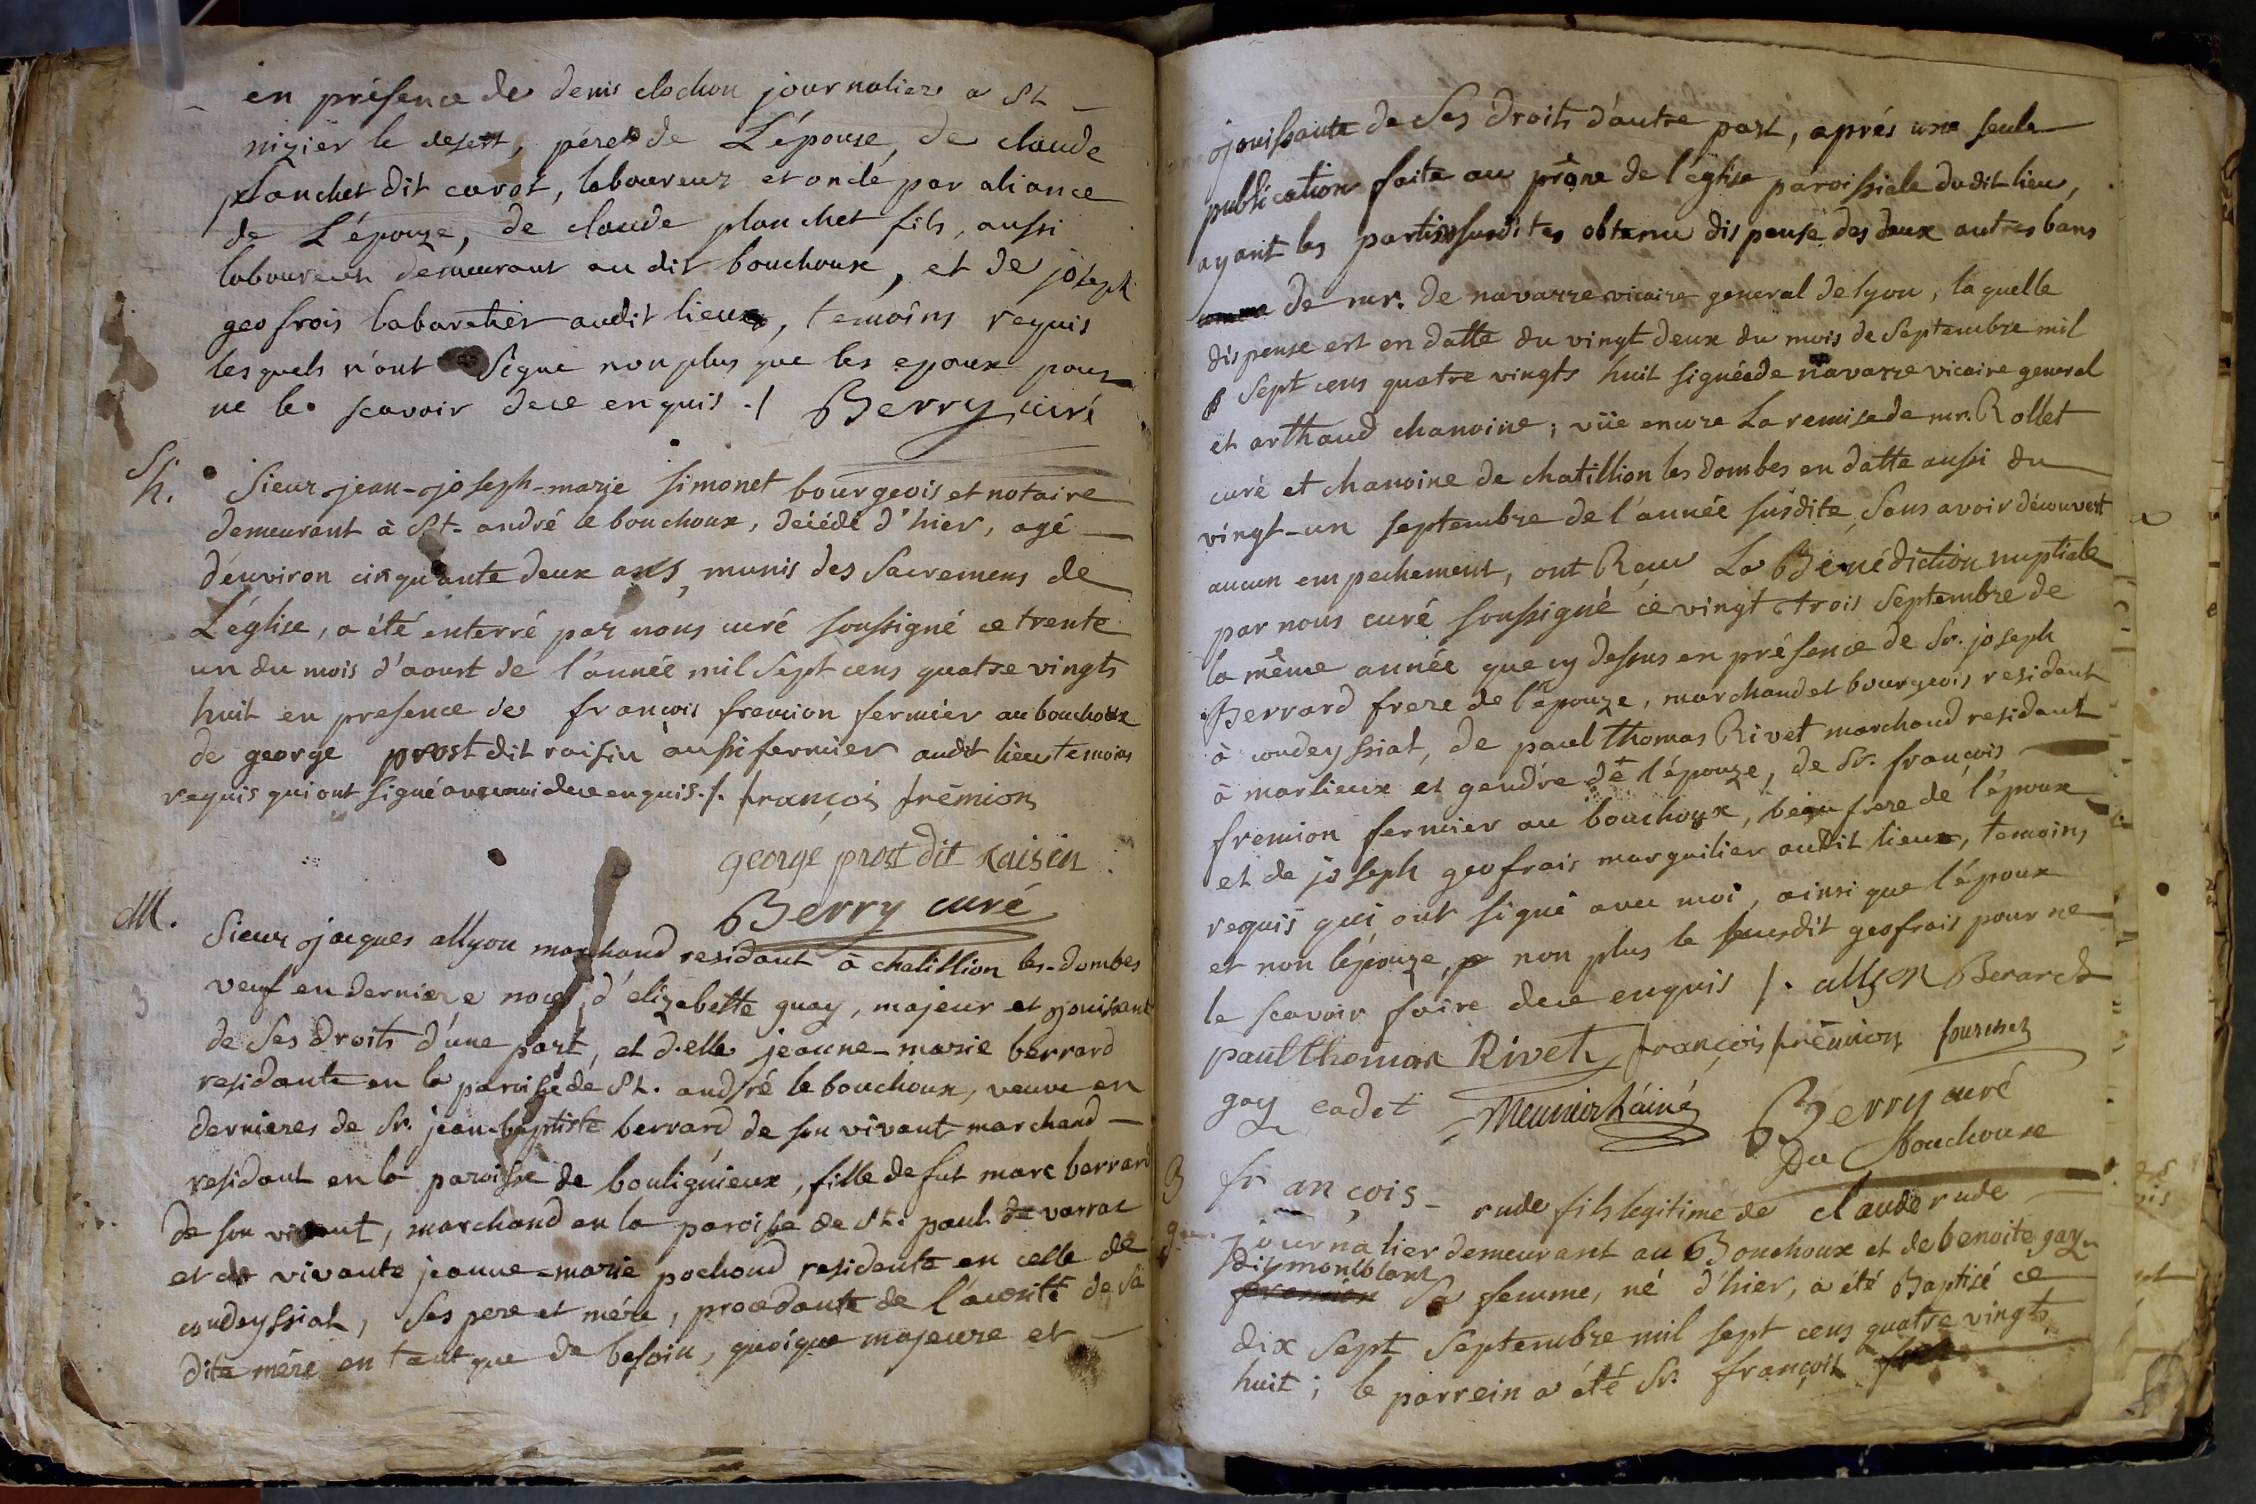 en présence de denis clochon journalier a St
nizier le desert, pere de L'épouse, de claude
planchet dit carot, laboureur et oncle par aliance
de L'épouze, de claude planchet fils, aussi
laboureur demeurant au dit bouchoux, et de joseph
geofrois labaretier audit lieux, temoins requis
lesquels n'ont signé non plus que les epoux pour
ne le scavoir de ce enquis ./ Berry curé
Sh. Sieur jean-joseph-marie simonet bourgeois et notaire
demeurant à St. andré le bouchoux, décédé d'hier, agé
d'environ cinquante deux ans, munis des Sacremens de
L'église, a été enterré par nous curé soussigné ce trente
un du mois d'aoust de l'année mil sept cens quatre vingts
huit en presence de françois fremion fermier au bouchoux
de george prost dit raisin aussi fermier audit lieu temoins
requis qui ont signé avec moi de ce enquis ./. françois frémion
george prost dit Raisin
Berry curé
M. Sieur jacques allyon marchand residant à chatillion les-dombes
veuf en derniere noces, d'elizabette guay, majeur et jouissant
3
de ses droits d'une part, et d.elle jeanne-marie berrard
residante en la paroisse de St. andré le bouchoux, veuve en
dernieres de Sr. jean-baptiste berrard de son vivant marchand
residant en la paroisse de boulignieux, fille de fut marc berrard
de son vivant, marchand en la paroisse de St. paul de varrac
et de vivante jeanne-marie pochoud residante en celle de
condeyssiat, ses pere et mére, procedante de l'acorité de sa
dite mére en tant que de besoin, quoique majeure et
jouissante de ses droits d'autre part, aprés une seule
publication faite au prône de l'église paroissiale dudit lieu,
ayant les parties susdites obtenu dispense des deux autres bans
de mr. de navarre vicaire general de lyon, laquelle
dispense est en datte du vingt deux du mois de septembre mil
sept cens quatre vingts huit signée de navarre vicaire general
et arthaud chanoine; vüe encore La remise de mr. Rollet
curé et chanoine de chatillion les dombes en datte aussi du
vingt-un septembre de l'année susdite, sans avoir découvert
aucun empechement, ont Recu La Bénédiction nuptiale
par nous curé soussigné ce vingt trois septembre de
la même année que cy dessus en présence de Sr. joseph
Berrard frere de l'épouze, marchand et bourgeois residant
à condeyssiat, de paul thomas Rivet marchand residant
à marlieux et gendre de l'épouze, de Sr. françois
fremion fermier au bouchoux, beau frere de l'époux
et de joseph geofrais marguilier audit lieux, temoins
requis qui ont signé avec moi, ainsi que l'époux
et non lépouze, non plus le susdit geofrais pour ne
le scavoir faire de ce enquis ./. allyon Berard
paul thomas Rivet françois frémion
gay cadet Meunier L'ainé Berry curé
Du Bouchoux
françois rude fils legitime de claude rude
journalier demeurant au Bouchoux et de benoite gay
dit montblanc
sa femme, né d'hier, a été Baptisé ce
dix sept septembre mil sept cens quatre vingts
huit; le parrein a été Sr. françois